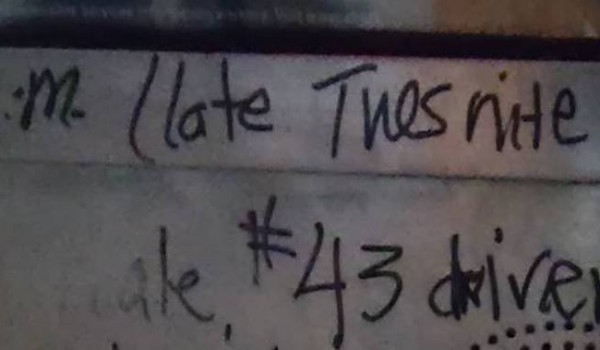 .m. (late Tues nite
ale, #43 driver